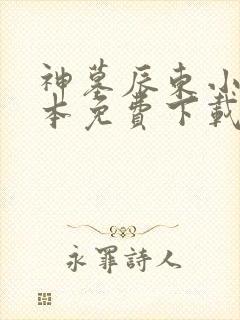 神墓辰东小
本免費下載
永罪詩人